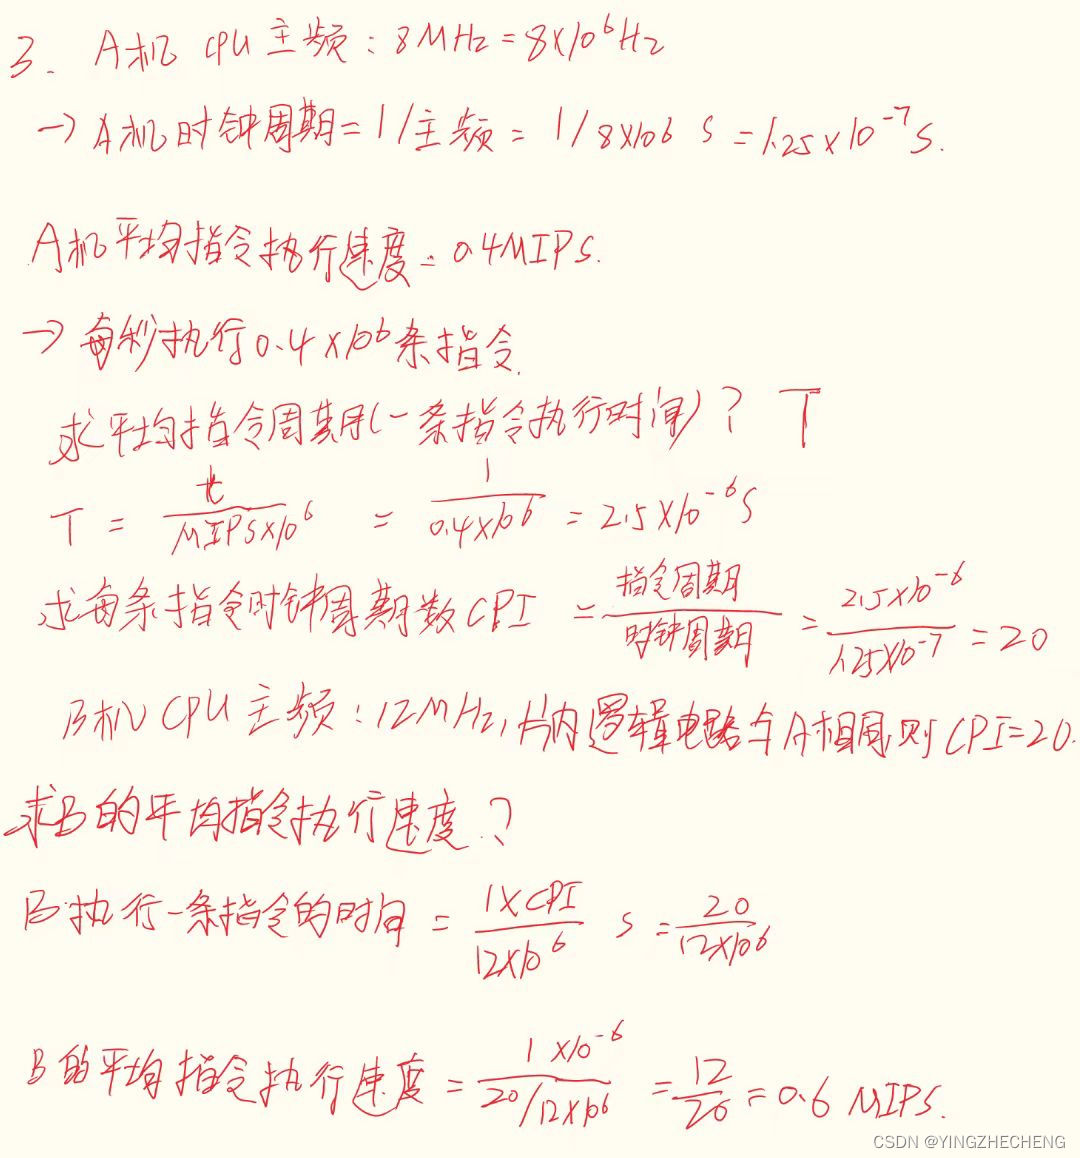 3. A机 CPU 主频：8MHz = 8×10⁶Hz
→ A机时钟周期 = 1/主频 = 1/8×10⁶ s = 1.25×10⁻⁷s.
A机平均指令执行速度 = 0.4MIPS.
→ 每秒执行0.4×10⁶条指令.
求平均指令周期(一条指令执行时间)？ T
T = t/(MIPS×10⁶) = 1/(0.4×10⁶) = 2.5×10⁻⁶s
求每条指令时钟周期数CPI = 指令周期/时钟周期 = 2.5×10⁻⁶/1.25×10⁻⁷ = 20
B机CPU主频：12MHz, 片内逻辑电路与A相同,则CPI=20.
求B的平均指令执行速度.？
B执行一条指令的时间 = 1×CPI/12×10⁶ s = 20/12×10⁶
B的平均指令执行速度 = 1×10⁻⁶/(20/12×10⁶) = 12/20 = 0.6 MIPS.
CSDN @YINGZHECHENG